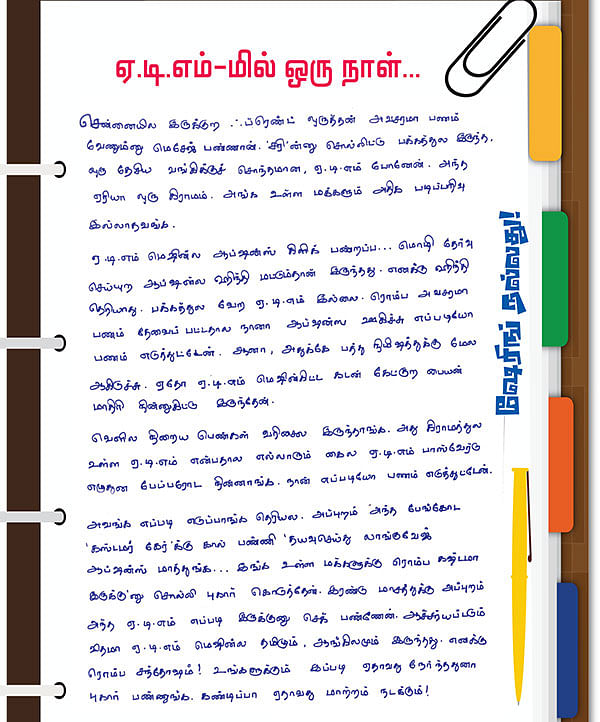 ஏ.டி.எம்-மில் ஒரு நாள்...
சென்னையில இருக்குற ஃப்ரெண்ட் ஒருத்தன் அவசரமா பணம்
வேணும்னு மெசேஜ் பண்ணான். 'சரி'ன்னு சொல்லிட்டு பக்கத்துல இருந்த,
ஒரு தேசிய வங்கிக்குச் சொந்தமான, ஏ.டி.எம் போனேன். அந்த
ஏரியா ஒரு கிராமம். அங்க உள்ள மக்களும் அதிக படிப்பறிவு
இல்லாதவங்க.
ஏ.டி.எம் மெஷின்ல ஆப்ஷன்ஸ் கிளிக் பண்றப்ப... மொழி தேர்வு
செய்யுற ஆப்ஷன்ல ஹிந்தி மட்டும்தான் இருந்தது. எனக்கு ஹிந்தி
தெரியாது. பக்கத்துல வேற ஏ.டி.எம் இல்லை. ரொம்ப அவசரமா
பணம் தேவைப் பட்டதால நானா ஆப்ஷன்ஸ ஊகிச்சு எப்படியோ
பணம் எடுத்துட்டேன். ஆனா, அதுக்கே பத்து நிமிஷத்துக்கு மேல
ஆகிடுச்சு. ஏதோ ஏ.டி.எம் மெஷின்கிட்ட கடன் கேட்டுற பையன்
மாதிரி நின்னுகிட்டு இருந்தேன்.
வெளில நிறைய பெண்கள் வரிசைல இருந்தாங்க. அது கிராமத்துல
உள்ள ஏ.டி.எம் என்பதால எல்லாரும் கைல ஏ.டி.எம் பாஸ்வேர்டு
எழுதின பேப்பரோட நின்னாங்க. நான் எப்படியோ பணம் எடுத்துட்டேன்.
அவங்க எப்படி எடுப்பாங்க தெரியல. அப்புறம் அந்த பேங்கோட
'கஸ்டமர் கேர்'க்கு கால் பண்ணி 'தயவுசெய்து லாங்குவேஜ்
ஆப்ஷன்ஸ் மாத்துங்க... இங்க உள்ள மக்களுக்கு ரொம்ப கஷ்டமா
இருக்கு'னு சொல்லி புகார் கொடுத்தேன். இரண்டு மாசத்துக்கு அப்புறம்
அந்த ஏ.டி.எம் எப்படி இருக்குனு செக் பண்ணேன். ஆச்சர்யப்படும்
விதமா ஏ.டி.எம் மெஷின்ல தமிழும், ஆங்கிலமும் இருந்தது. எனக்கு
ரொம்ப சந்தோஷம்! உங்களுக்கும் இப்படி ஏதாவது நேர்ந்ததுனா
புகார் பண்ணுங்க. கண்டிப்பா ஏதாவது மாற்றம் நடக்கும்!
ஷேரிங் நல்லது!